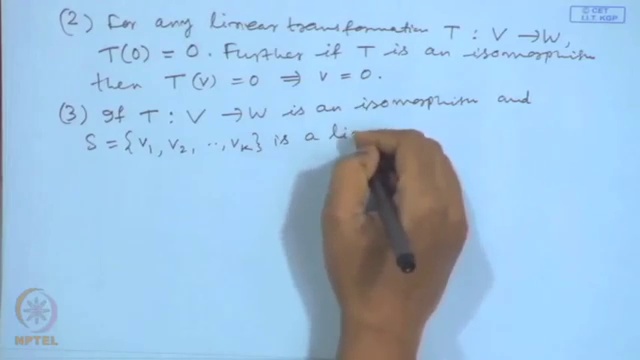 © CET
I.I.T. KGP
(2) For any linear transformation T : V → W,
T(0) = 0. Further if T is an isomorphism
then T(v) = 0 ⇒ v = 0.
(3) If T : V → W is an isomorphism and
S = {v₁, v₂, .., vₖ} is a li
NPTEL